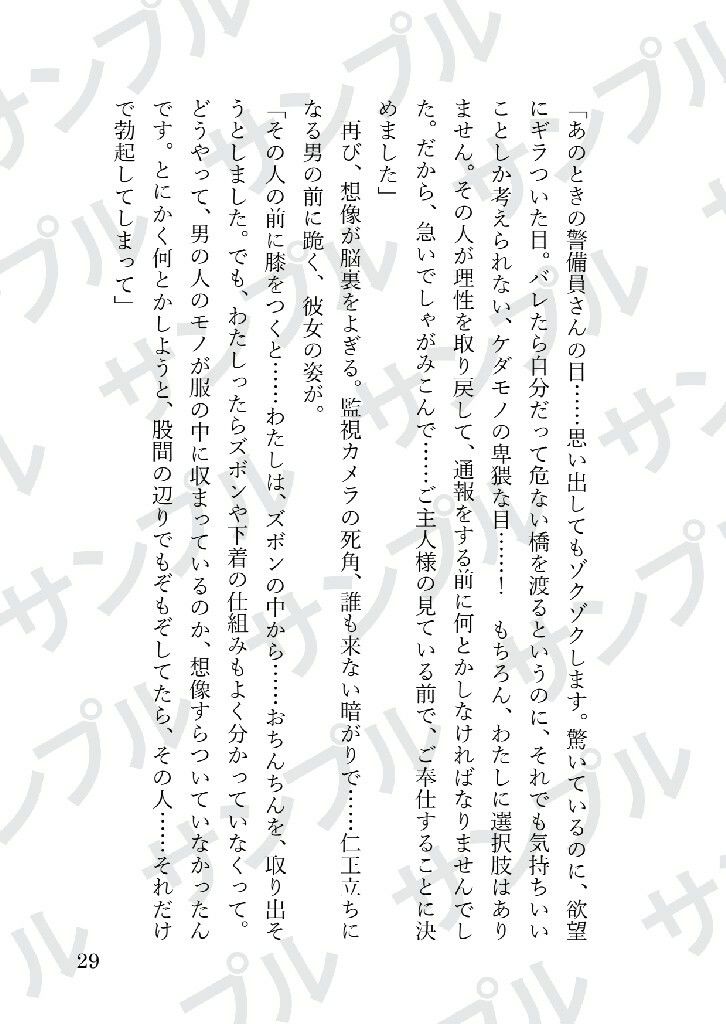 「あのときの警備員さんの目……思い出してもゾクゾクします。驚いているのに、欲望
にギラついた目。バレたら自分だって危ない橋を渡るというのに、それでも気持ちいい
ことしか考えられない、ケダモノの卑猥な目……！　もちろん、わたしに選択肢はあり
ません。その人が理性を取り戻して、通報をする前に何とかしなければなりませんでし
た。だから、急いでしゃがみこんで……ご主人様の見ている前で、ご奉仕することに決
めました」
　再び、想像が脳裏をよぎる。監視カメラの死角、誰も来ない暗がりで……仁王立ちに
なる男の前に跪く、彼女の姿が。
「その人の前に膝をつくと……わたしは、ズボンの中から……おちんちんを、取り出そ
うとしました。でも、わたしったらズボンや下着の仕組みもよく分かっていなくって。
どうやって、男の人のモノが服の中に収まっているのか、想像すらついていなかったん
です。とにかく何とかしようと、股間の辺りでもぞもぞしてたら、その人……それだけ
で勃起してしまって」
29
サンプル
サンプル
サンプル
サンプル
サンプル
サンプル
サンプル
サンプル
サンプル
サンプル
サンプル